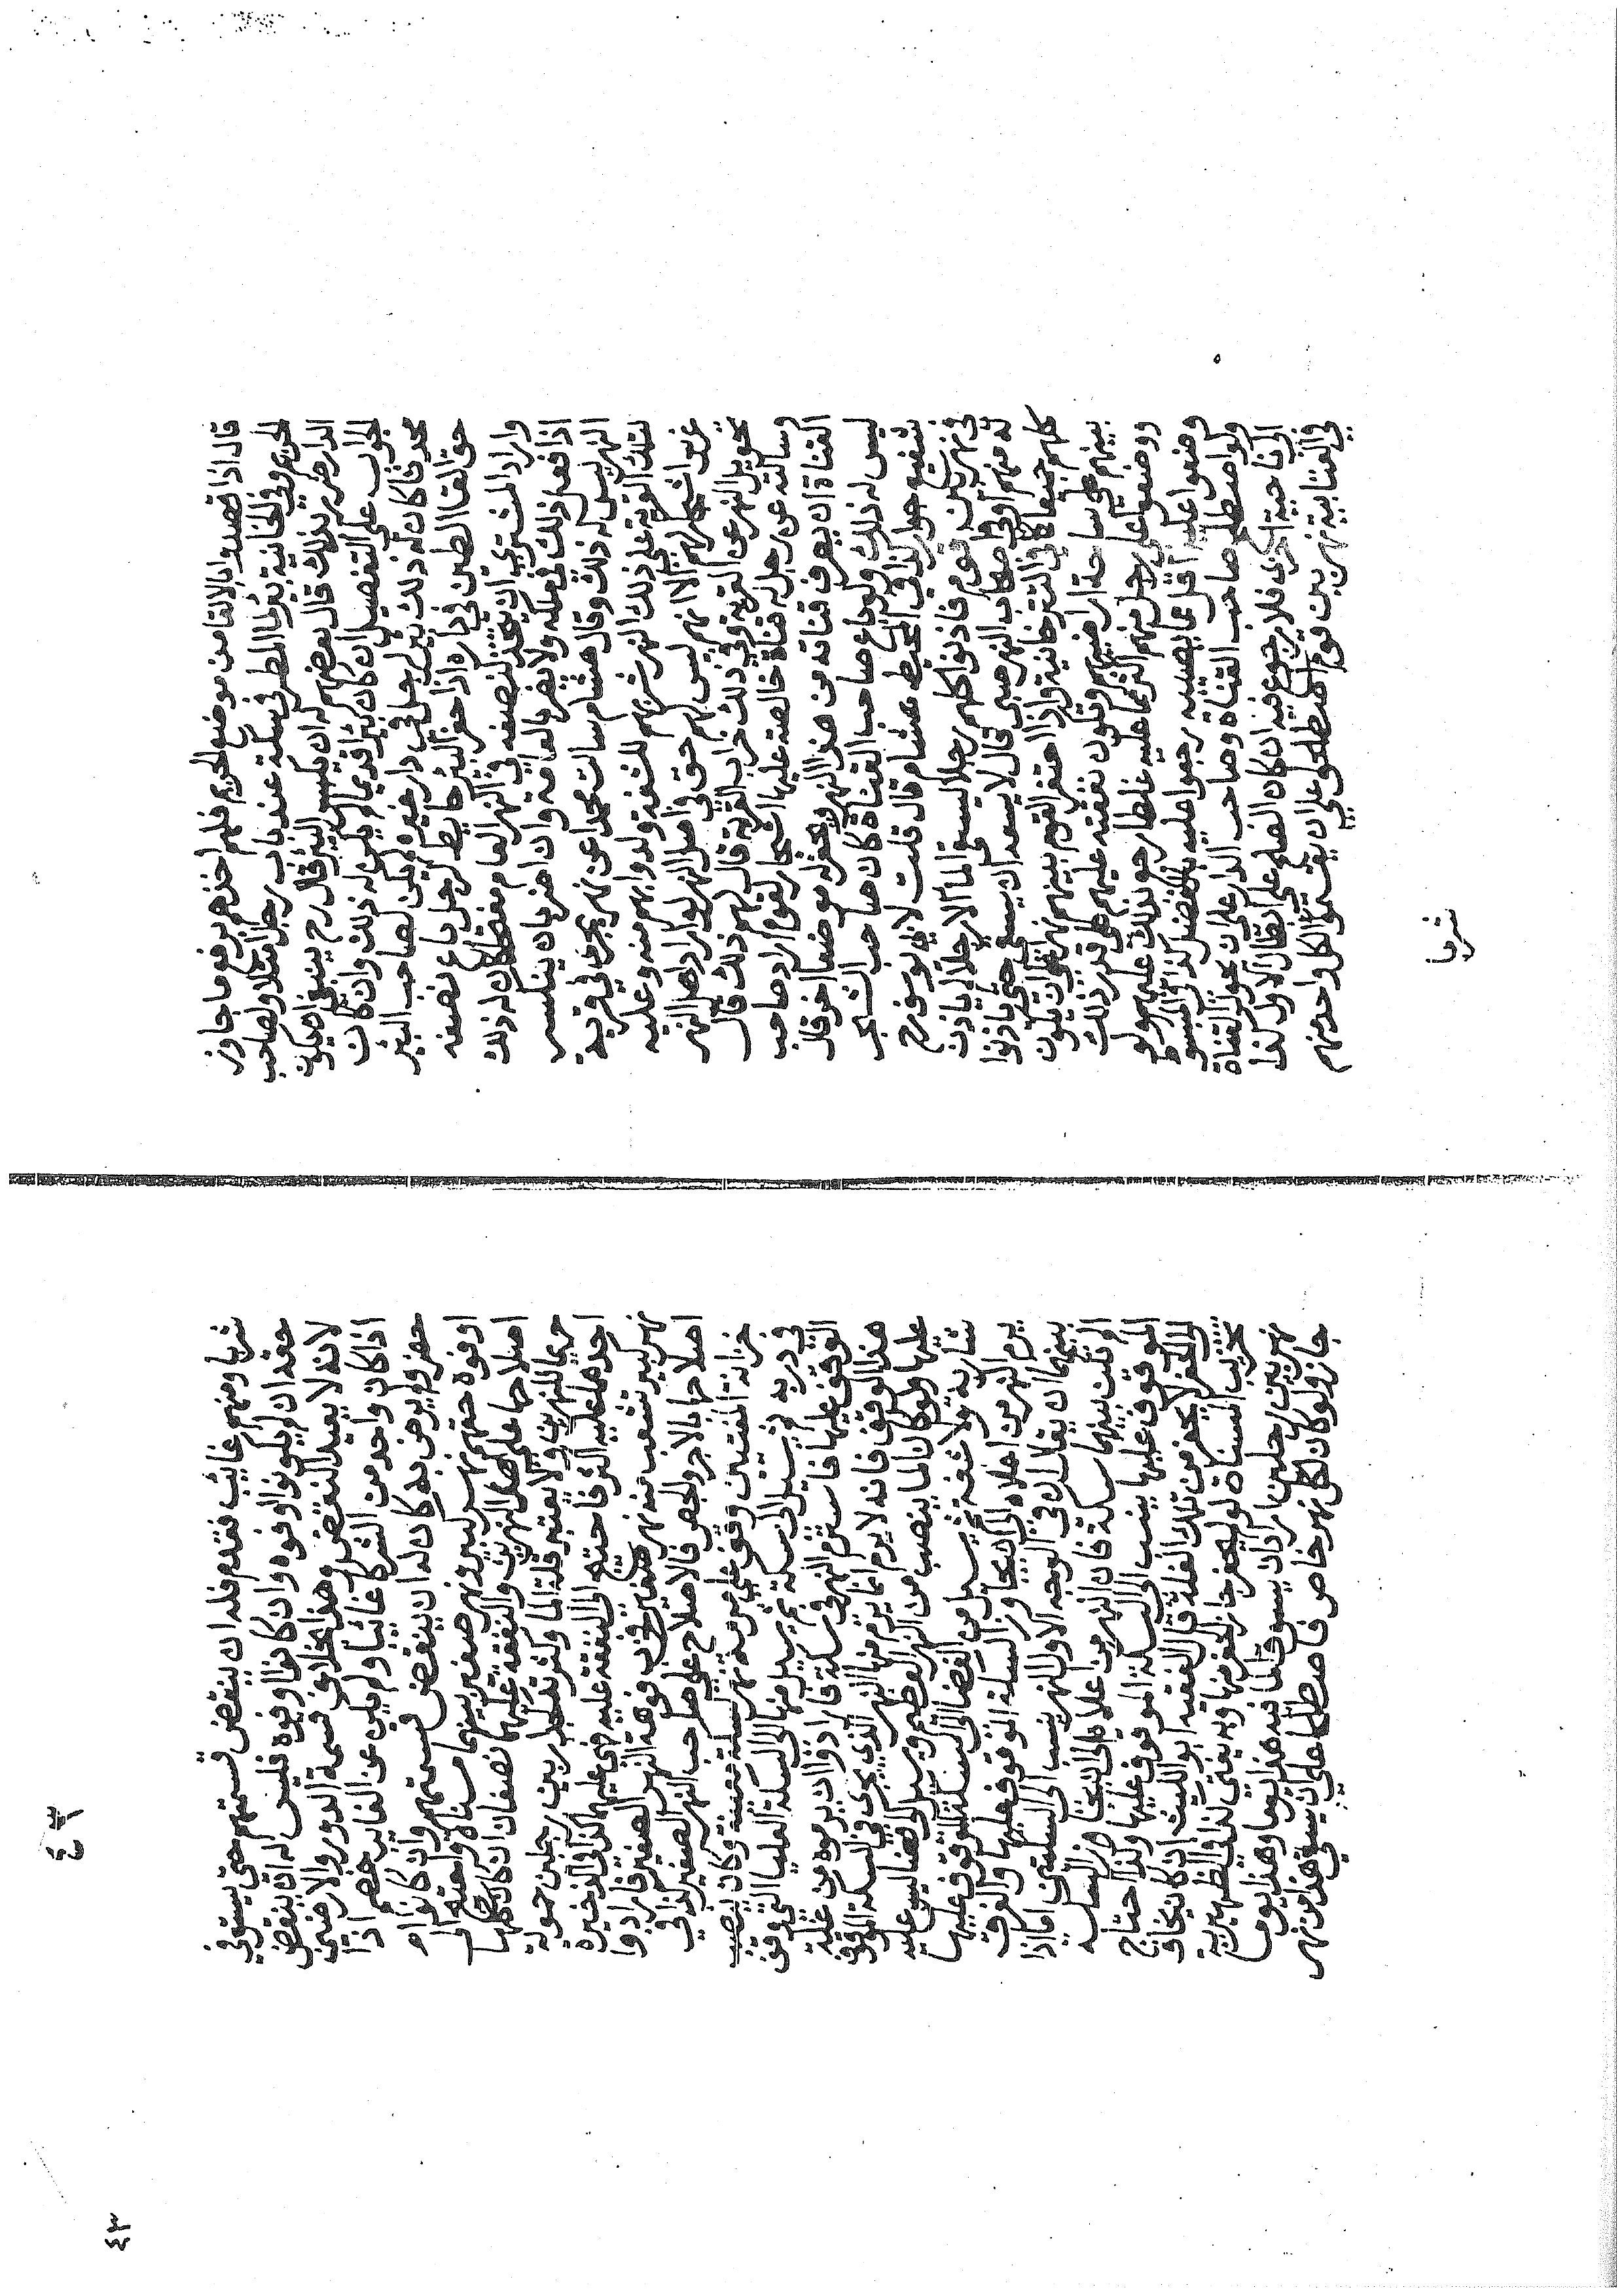 قال اذا قصدوا بالالقا من موضع الحريم فلهم اخذهم برفع ما جاوز
الحريم وفي الخانية بئر لما المطر في سكة عند باب رجل امتلا ولصاحب
الدار ضرر بذلك قال بعضهم له ان يكبس البئر قال رح ينبغي ان يكون
الجواب على التفصيل ان كان بئرا قديما لم يكن له ذلك وان كان
محدثا كان له ذلك بئر لرجل في دار غيره لم يكن لصاحب البئر
حق القا الطين في داره اذا حفر البئر حايط لرجل باع نصفه
واراد المشتري ان يتخذ لنصفه في النهر العام مفتحا كان له ذلك
اذا فعل ذلك في ملكه ولا يضر بالعامة وان اضر بان ينكسر
النهر ليس له ذلك وقال هشام سالت محمدا عن نهر يجري في قرية
لتلك القرية على ذلك النهر شربهم للشفة ولدوابهم منه وعليه
غرس اشجارهم الا انهم ليس لهم حق في اصل النهر لو اراد اهل النهر
تحويل النهر عن القرية وفي ذلك خراب القرية قال لهم ذلك قال
وسالته عن رجل له قناة خالصة عليها اشجار لقوم اراد صاحب
القناة ان يصرف قناته من هذا النهر ويحفر له موضعا اخر قال
ليس له ذلك ولو باع صاحب القناة كان صاحب الشجر
شفيع جوار كذا في المحيط هشام قال قلت لابي يوسف رح
في نهر بين قوم فاذنوا كلهم رجلا ليسقي الما الا رجلا لم ياذن
له منهم او في اصحاب النهر صبي قال لا يسعه ان يسقي حتى ياذنوا
كلهم جميعا كذا في التترخانية واذا احتفر القوم بينهم نهرا على ان يكون
بينهم على مساحة اراضيهم وتكون نفقته عليهم على قدر ذلك
ووضعوا على رجل منهم اكثر مما عليه غلطا رجع بذلك عليهم ولو
وضعوا عليه اقل مما يصيبه رجعوا عليه بالفضل كذا في المبسوط
ولو اصطلح صاحب القناة وصاحب الدار على ان يحول القناة
الى ناحية اخرى فلا رجوع فيه ان كان الصلح على ابطال الاول كذا
في القنية نهر بين قوم اصطلحوا على ان يقسموا لكل واحد منهم
شربا
شربا ومنهم غائب فقدم فله ان ينقض قسمتهم حتى يستوفي
حقه ان لم يكونوا اوفوه وان كانوا اوفوه فليس له ان ينقض
لانه لا يفيد النقض وهذا بخلاف قسمة الدور والارضين
اذا كان واحد من الشركا غائبا ولم يكن عن الغايب خصم اذا
حضر ولم يرض به كان له ان ينقض قسمتهم وان كانوا
اوفوه حقه نهر كبير ونهر صغير بينهما مسناة واحتيج الى
اصلاحها على اهل النهرين والنفقة عليهما نصفان ان كان كلها
حريما للنهرين ولا يعتبر قلة الما وكثرته كجدار بين رجلين حمولة
احدهما عليه اكثر فاحتج الى النفقة عليه فهي عليهما كذا في الذخيرة
نهر كبير تشعب منه نهر صغير فخرب فوهة النهر الصغير فارادوا
اصلاحها بالاجر والجص فالاصلاح على صاحب النهر الصغير كذا في
خزانة المفتيين وقف على مرمة نهر سكة معينة وكان ينصب
في دربه ثم يسيل الى سكة ثم يسيل منها الى السكة العليا التي وقف
الوقف عليها فاسترم النهر في سكة فارادوا ان يرموه من غلة
هذا الوقف فانه لا يرم انما يرم منها النهر الذي يجري في السكة الموقوف
عليها ولو كان الما ينصب من النهر العظيم ويسيل الى فضا ليس عليه
شاربة ولا شفة ثم يسيل من الفضا الى السكة الموقوف عليها
يرم النهر من اعلاه الى ان يجاوز السكة الموقوف عليها والفرق
بينهما ان يقال ان في الوجه الاول النهر ينسب الى السكتين اما اذا
لم يكن بينهما سكة فان النهر من اعلاه الى الفضا من السكة
الموقوف عليها ينسب الى السكة الموقوف عليها ولذا احتاج
الى الحفر لا يحفر من تلك الغلة قال الفقيه ابو الليث ان كان يخاف
تخريب المسناة لو لم يحفر جاز الحفر منها وبه يفتى كذا في الظهيرية
نهر بين رجلين ارادا ان يسوقا الما فيه هذا يوما وهذا يوما
جاز ولو كان لكل نهر خاص فاصطلحا على ان يسقي هذا من نهر
٤٣